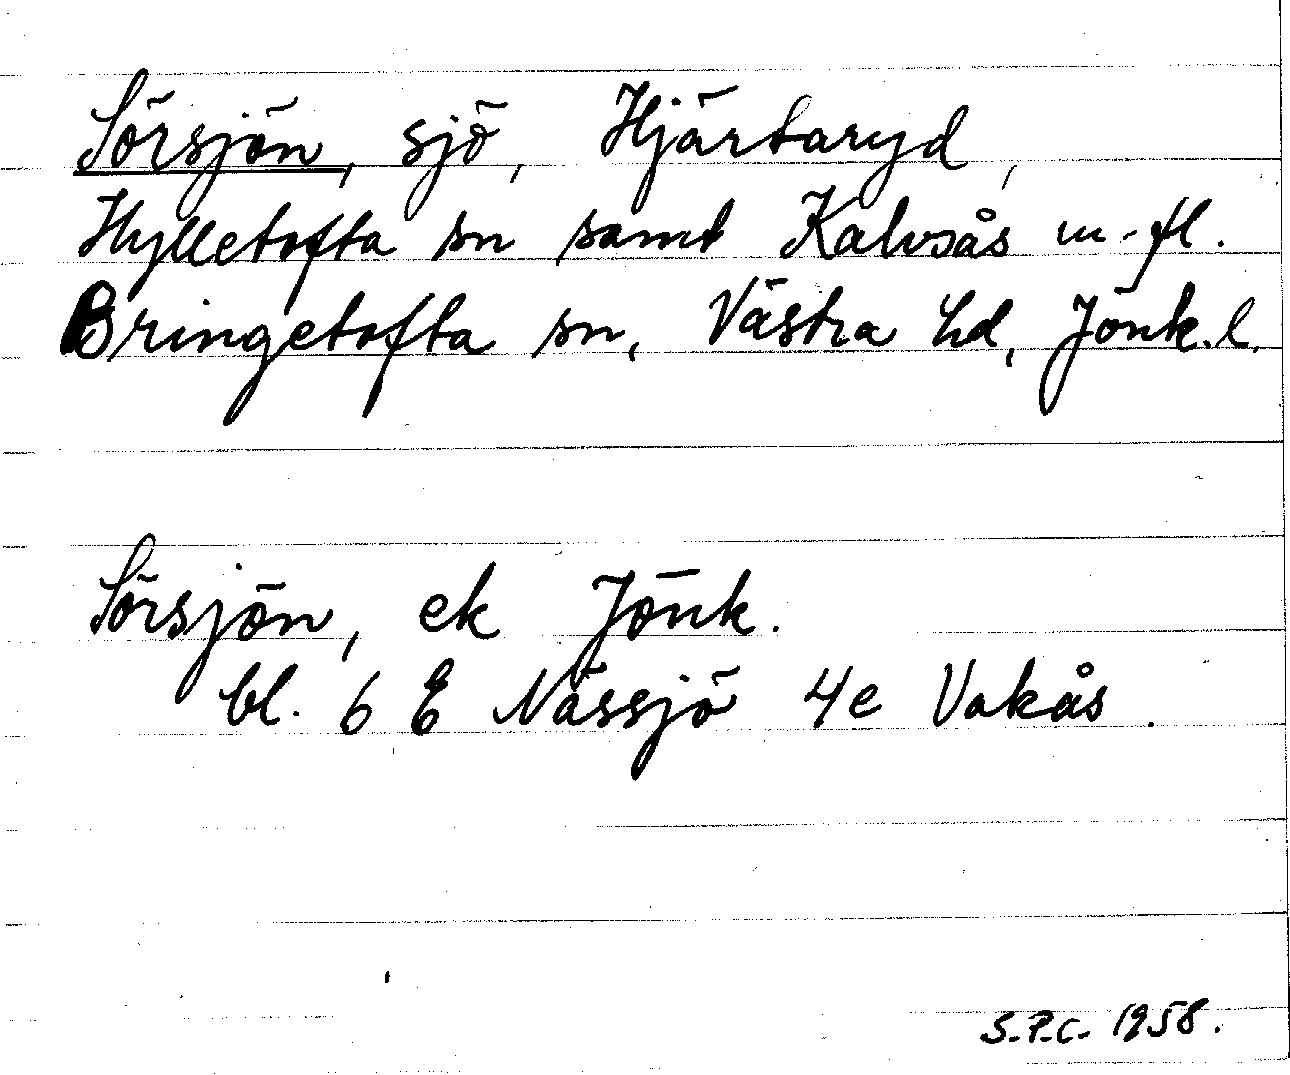 Sörsjön, sjö, Hjärtaryd,
Hylletofta sn samt Kalvsås m. fl.
Bringetofta sn, Västra hd, Jönk. l.
Sörsjön, ek Jönk.
bl. 6 E Nässjö 4e Vakås.
S.P.C. 1958.